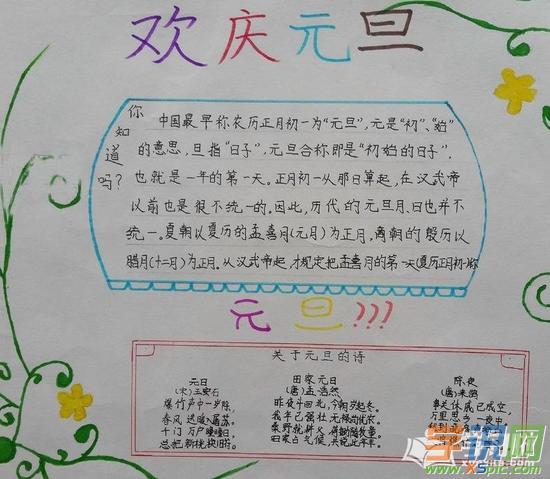 欢庆元旦
你知道吗？
中国最早称农历正月初一为“元旦”，元是“初”、“始”
的意思，旦指“日子”，元旦合称即是“初始的日子”，
也就是一年的第一天。正月初一从那日算起，在汉武帝
以前也是很不统一的。因此，历代的元旦月、日也并不
统一。夏朝以夏历的孟喜月（元月）为正月，商朝的殷历以
腊月（十二月）为正月。从汉武帝起，才规定把孟喜月的第一天（夏历正月初一）称
元旦???
关于元旦的诗
元日
（宋）王安石
爆竹声中一岁除，
春风送暖入屠苏。
千门万户曈曈日，
总把新桃换旧符。
田家元日
（唐）孟浩然
昨夜斗回北，今朝岁起东。
我年已强壮，无禄尚忧农。
桑野就耕父，荷锄随牧童。
田家占气候，共说此年丰。
除夜
（唐）来鹄
事关休戚已成空，
万里
学锐网